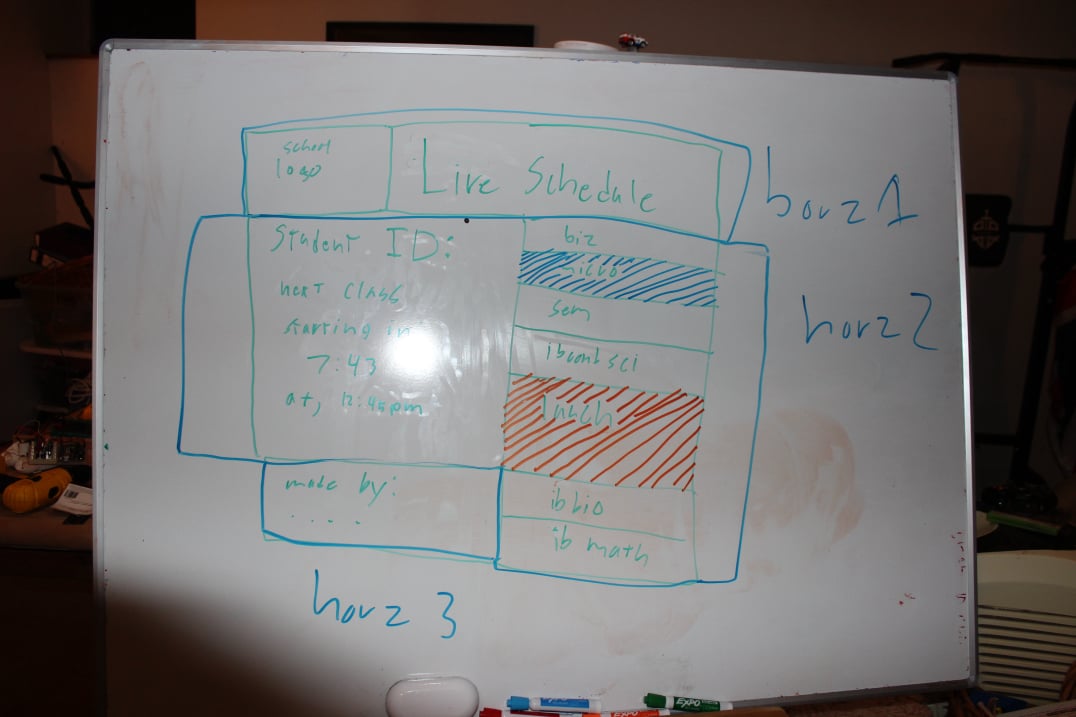 school
logo
Live Schedule
horz 1
Student ID:
next class
starting in
7:43
at, 12:45pm
biz
micro
sem
ib cont sci
lunch
ib bio
ib math
horz 2
made by:
. . . .
horz 3
EXPO
EXPO
EXPO